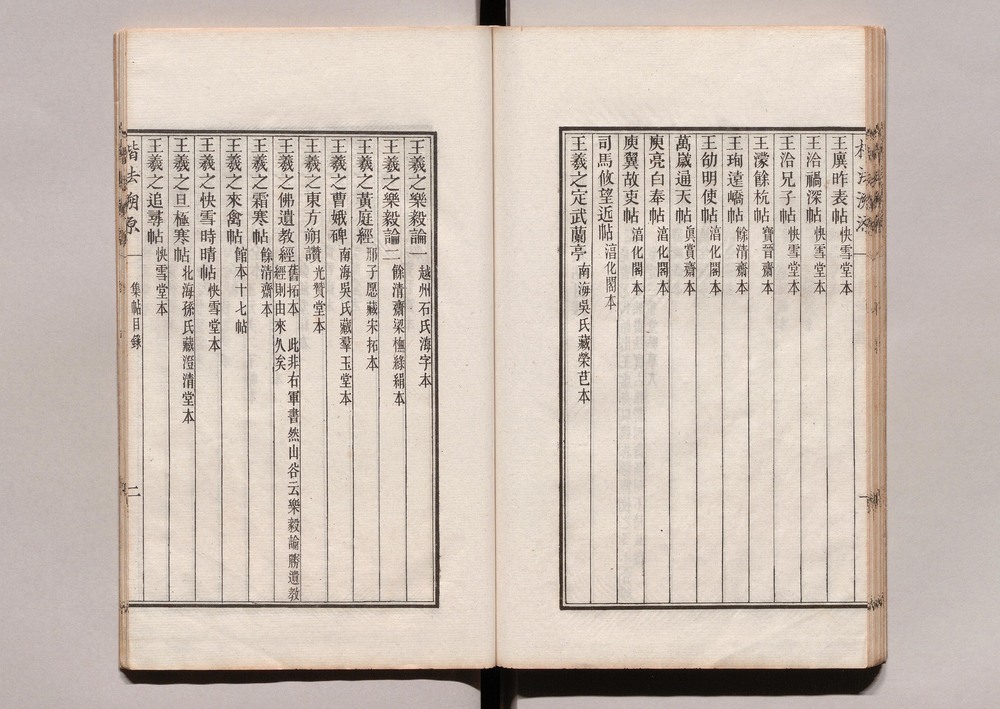 王廙昨表帖 快雪堂本
王洽禍深帖 快雪堂本
王洽兄子帖 快雪堂本
王濛餘杭帖 寶晉齋本
王珣遠嶠帖 餘清齋本
王劭明使帖 湻化閣本
萬歲通天帖 眞賞齋本
庾亮白奉帖 湻化閣本
庾翼故吏帖 湻化閣本
司馬攸望近帖 湻化閣本
王羲之定武蘭亭 南海吳氏藏榮芑本
王羲之樂毅論一 越州石氏海字本
王羲之樂毅論二 餘清齋梁橅絲絹本
王羲之黃庭經 邢子愿藏宋拓本
王羲之曹娥碑 南海吳氏藏羣玉堂本
王羲之東方朔讚 光贊堂本
王羲之佛遺教經 舊拓本 此非右軍書然山谷云樂毅論勝遺教
經則由來久矣
王羲之霜寒帖 餘清齋本
王羲之來禽帖 館本十七帖
王羲之快雪時晴帖 快雪堂本
王羲之旦極寒帖 北海孫氏藏澄清堂本
王羲之追尋帖 快雪堂本
楷法溯原 集帖目錄 二